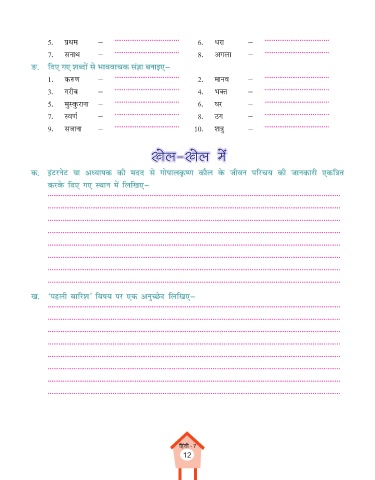 5. प्रथम – 6. धरा –
7. सनाथ – 8. अगला –
ङ. दिए गए शब्दों से भाववाचक संज्ञा बनाइए–
1. करुण – 2. मानव –
3. गरीब – 4. भक्त –
5. मुस्कुराना – 6. घर –
7. स्वर्ण – 8. ठग –
9. सजाना – 10. शत्रु –
खेल-खेल में
क. इंटरनेट या अध्यापक की मदद से गोपालकृष्ण कौल के जीवन परिचय की जानकारी एकत्रित
करके दिए गए स्थान में लिखिए–
ख. 'पहली बारिश' विषय पर एक अनुच्छेद लिखिए–
हिंदी - 7
12